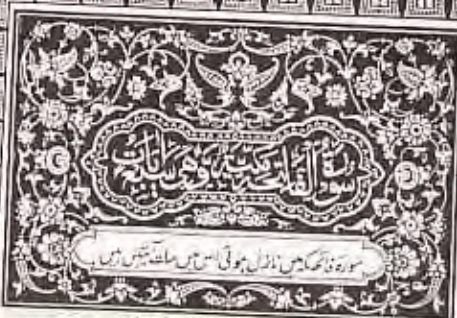 سورة الفاتحة مكية وهى سبع آيات
سورۃ فاتحہ مکہ میں نازل ہوئی اس میں سات آیتیں ہیں